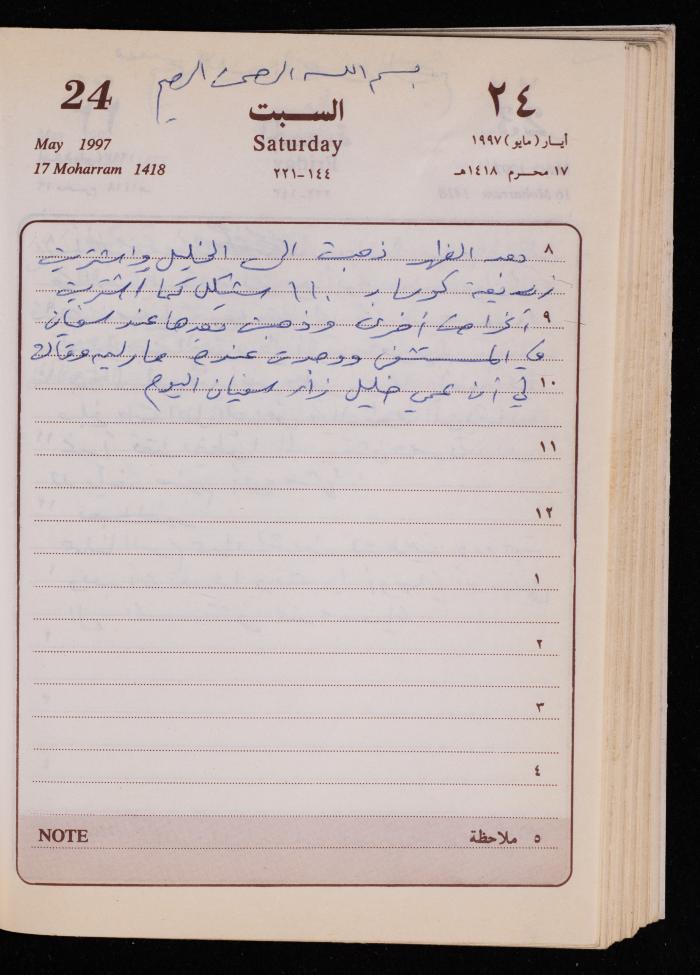 بسم الله الرحمن الرحيم
24
السبت
٢٤
May 1997
Saturday
أيار (مايو) ١٩٩٧
17 Moharram 1418
١٤٤-٢٢١
١٧ محرم ١٤١٨هـ
٨
بعد الظهر ذهبت الى الخليل واشتريت
بـ ١١٠ شيكل كما اشتريت
٩
أغراض أخرى وذهبت بعدها عند سفيان
في المستشفى ووجدت عنده وقال
١٠
لي أن عمي خليل زار سفيان اليوم
١١
١٢
١
٢
٣
٤
NOTE
٥ ملاحظة